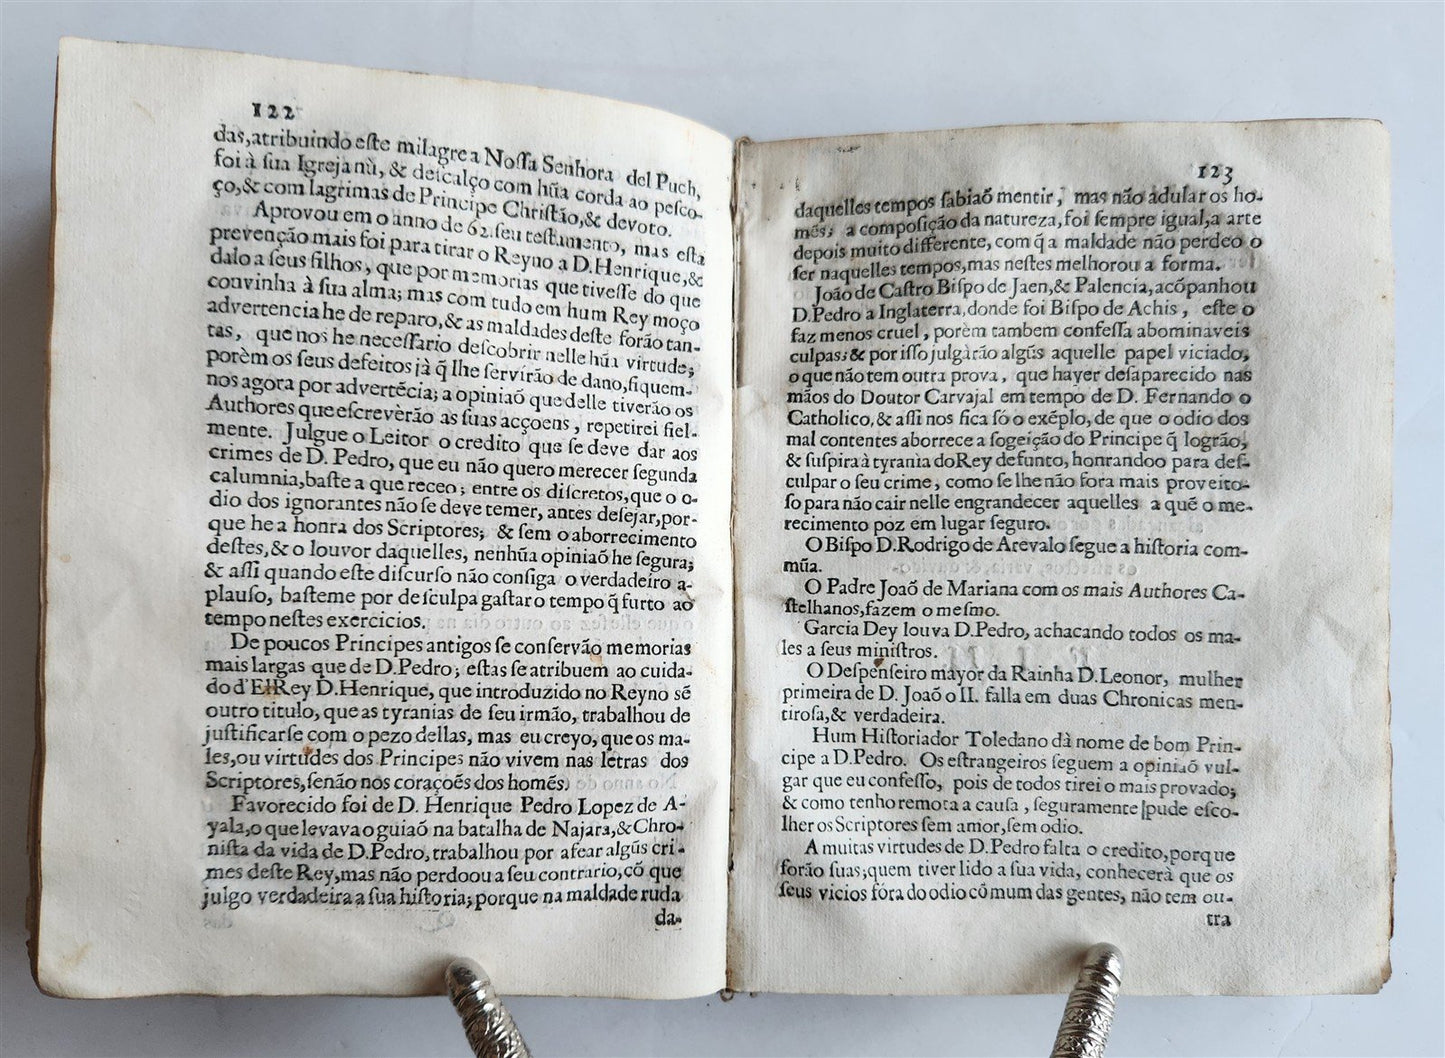 122
das,atribuindo eſte milagre a Noſſa Senhora del Puch,
foi à ſua Igreja nù, & deſcalço com hũa corda ao peſco-
ço,& com lagrimas de Principe Chriſtão,& devoto.
Aprovou em o anno de 62. ſeu teſtamento, mas eſta
prevenção mais foi para tirar o Reyno a D.Henrique,&
dalo a ſeus filhos, que por memorias que tiveſſe do que
convinha à ſua alma; mas com tudo em hum Rey moço
advertencia he de reparo,& as maldades deſte forão tan-
tas, que nos he neceſſario deſcobrir nelle hũa virtude;
porèm os ſeus defeitos jà q̃ lhe ſervirão de dano, fiquem-
nos agora por advertẽcia; a opiniaõ que delle tiverão os
Authores que eſcrevèrão as ſuas acçoens, repetirei fiel-
mente. Julgue o Leitor o credito que ſe deve dar aos
crimes de D. Pedro, que eu não quero merecer ſegunda
calumnia,baſte a que receo; entre os diſcretos,que o o-
dio dos ignorantes não ſe deve temer, antes deſejar,por-
que he a honra dos Scriptores; & ſem o aborrecimento
deſtes,& o louvor daquelles, nenhũa opiniaõ he ſegura;
& aſſi quando eſte diſcurſo não conſiga o verdadeiro a-
plauſo, baſteme por deſculpa gaſtar o tempo q̃ furto ao
tempo neſtes exercicios.
De poucos Principes antigos ſe conſervão memorias
mais largas que de D.Pedro; eſtas ſe atribuem ao cuida-
do d'ElRey D.Henrique, que introduzido no Reyno sẽ
outro titulo, que as tyranias de ſeu irmão, trabalhou de
juſtificarſe com o pezo dellas, mas eu creyo, que os ma-
les,ou virtudes dos Principes não vivem nas letras dos
Scriptores,ſenão nos coraçoẽs dos homẽs.
Favorecido foi de D. Henrique Pedro Lopez de A-
yala,o que levava o guiaõ na batalha de Najara,& Chro-
niſta da vida de D.Pedro,trabalhou por afear algũs cri-
mes deſte Rey,mas não perdoou a ſeu contrario,cõ que
julgo verdadeira a ſua hiſtoria; porque na maldade ruda
da-
123
daquelles tempos ſabiaõ mentir, mas não adular os ho-
mẽs; a compoſição da natureza, foi ſempre igual,a arte
depois muito differente, com q̃ a maldade não perdeo o
ſer naquelles tempos,mas neſtes melhorou a forma.
João de Caſtro Biſpo de Jaen,& Palencia,acõpanhou
D.Pedro a Inglaterra,donde foi Biſpo de Achis, eſte o
faz menos cruel, porèm tambem confeſſa abominaveis
culpas;& por iſſo julgàrão algũs aquelle papel viciado,
o que não tem outra prova, que hayer deſaparecido nas
mãos do Doutor Carvajal em tempo de D. Fernando o
Catholico,& aſſi nos fica ſó o exẽplo, de que o odio dos
mal contentes aborrece a ſogeição do Principe q̃ lográo,
& ſuſpira à tyrania do Rey defunto, honrandoo para deſ-
culpar o ſeu crime, como ſe lhe não fora mais proveito-
ſo para não cair nelle engrandecer aquelles a quẽ o me-
recimento poz em lugar ſeguro.
O Biſpo D.Rodrigo de Arevalo ſegue a hiſtoria com-
mũa.
O Padre Joaõ de Mariana com os mais Authores Ca-
ſtelhanos,fazem o meſmo.
Garcia Dey louva D.Pedro, achacando todos os ma-
les a ſeus miniſtros.
O Deſpenſeiro mayor da Rainha D.Leonor, mulher
primeira de D. Joaõ o II. falla em duas Chronicas men-
tiroſa,& verdadeira.
Hum Hiſtoriador Toledano dà nome de bom Prin-
cipe a D.Pedro. Os eſtrangeiros ſeguem a opiniaõ vul-
gar que eu confeſſo, pois de todos tirei o mais provado;
& como tenho remota a cauſa, ſeguramente pude eſco-
lher os Scriptores ſem amor,ſem odio.
A muitas virtudes de D.Pedro falta o credito,porque
forão ſuas;quem tiver lido a ſua vida, conhecerà que os
ſeus vicios fóra do odio cõmum das gentes, não tem ou-
tra